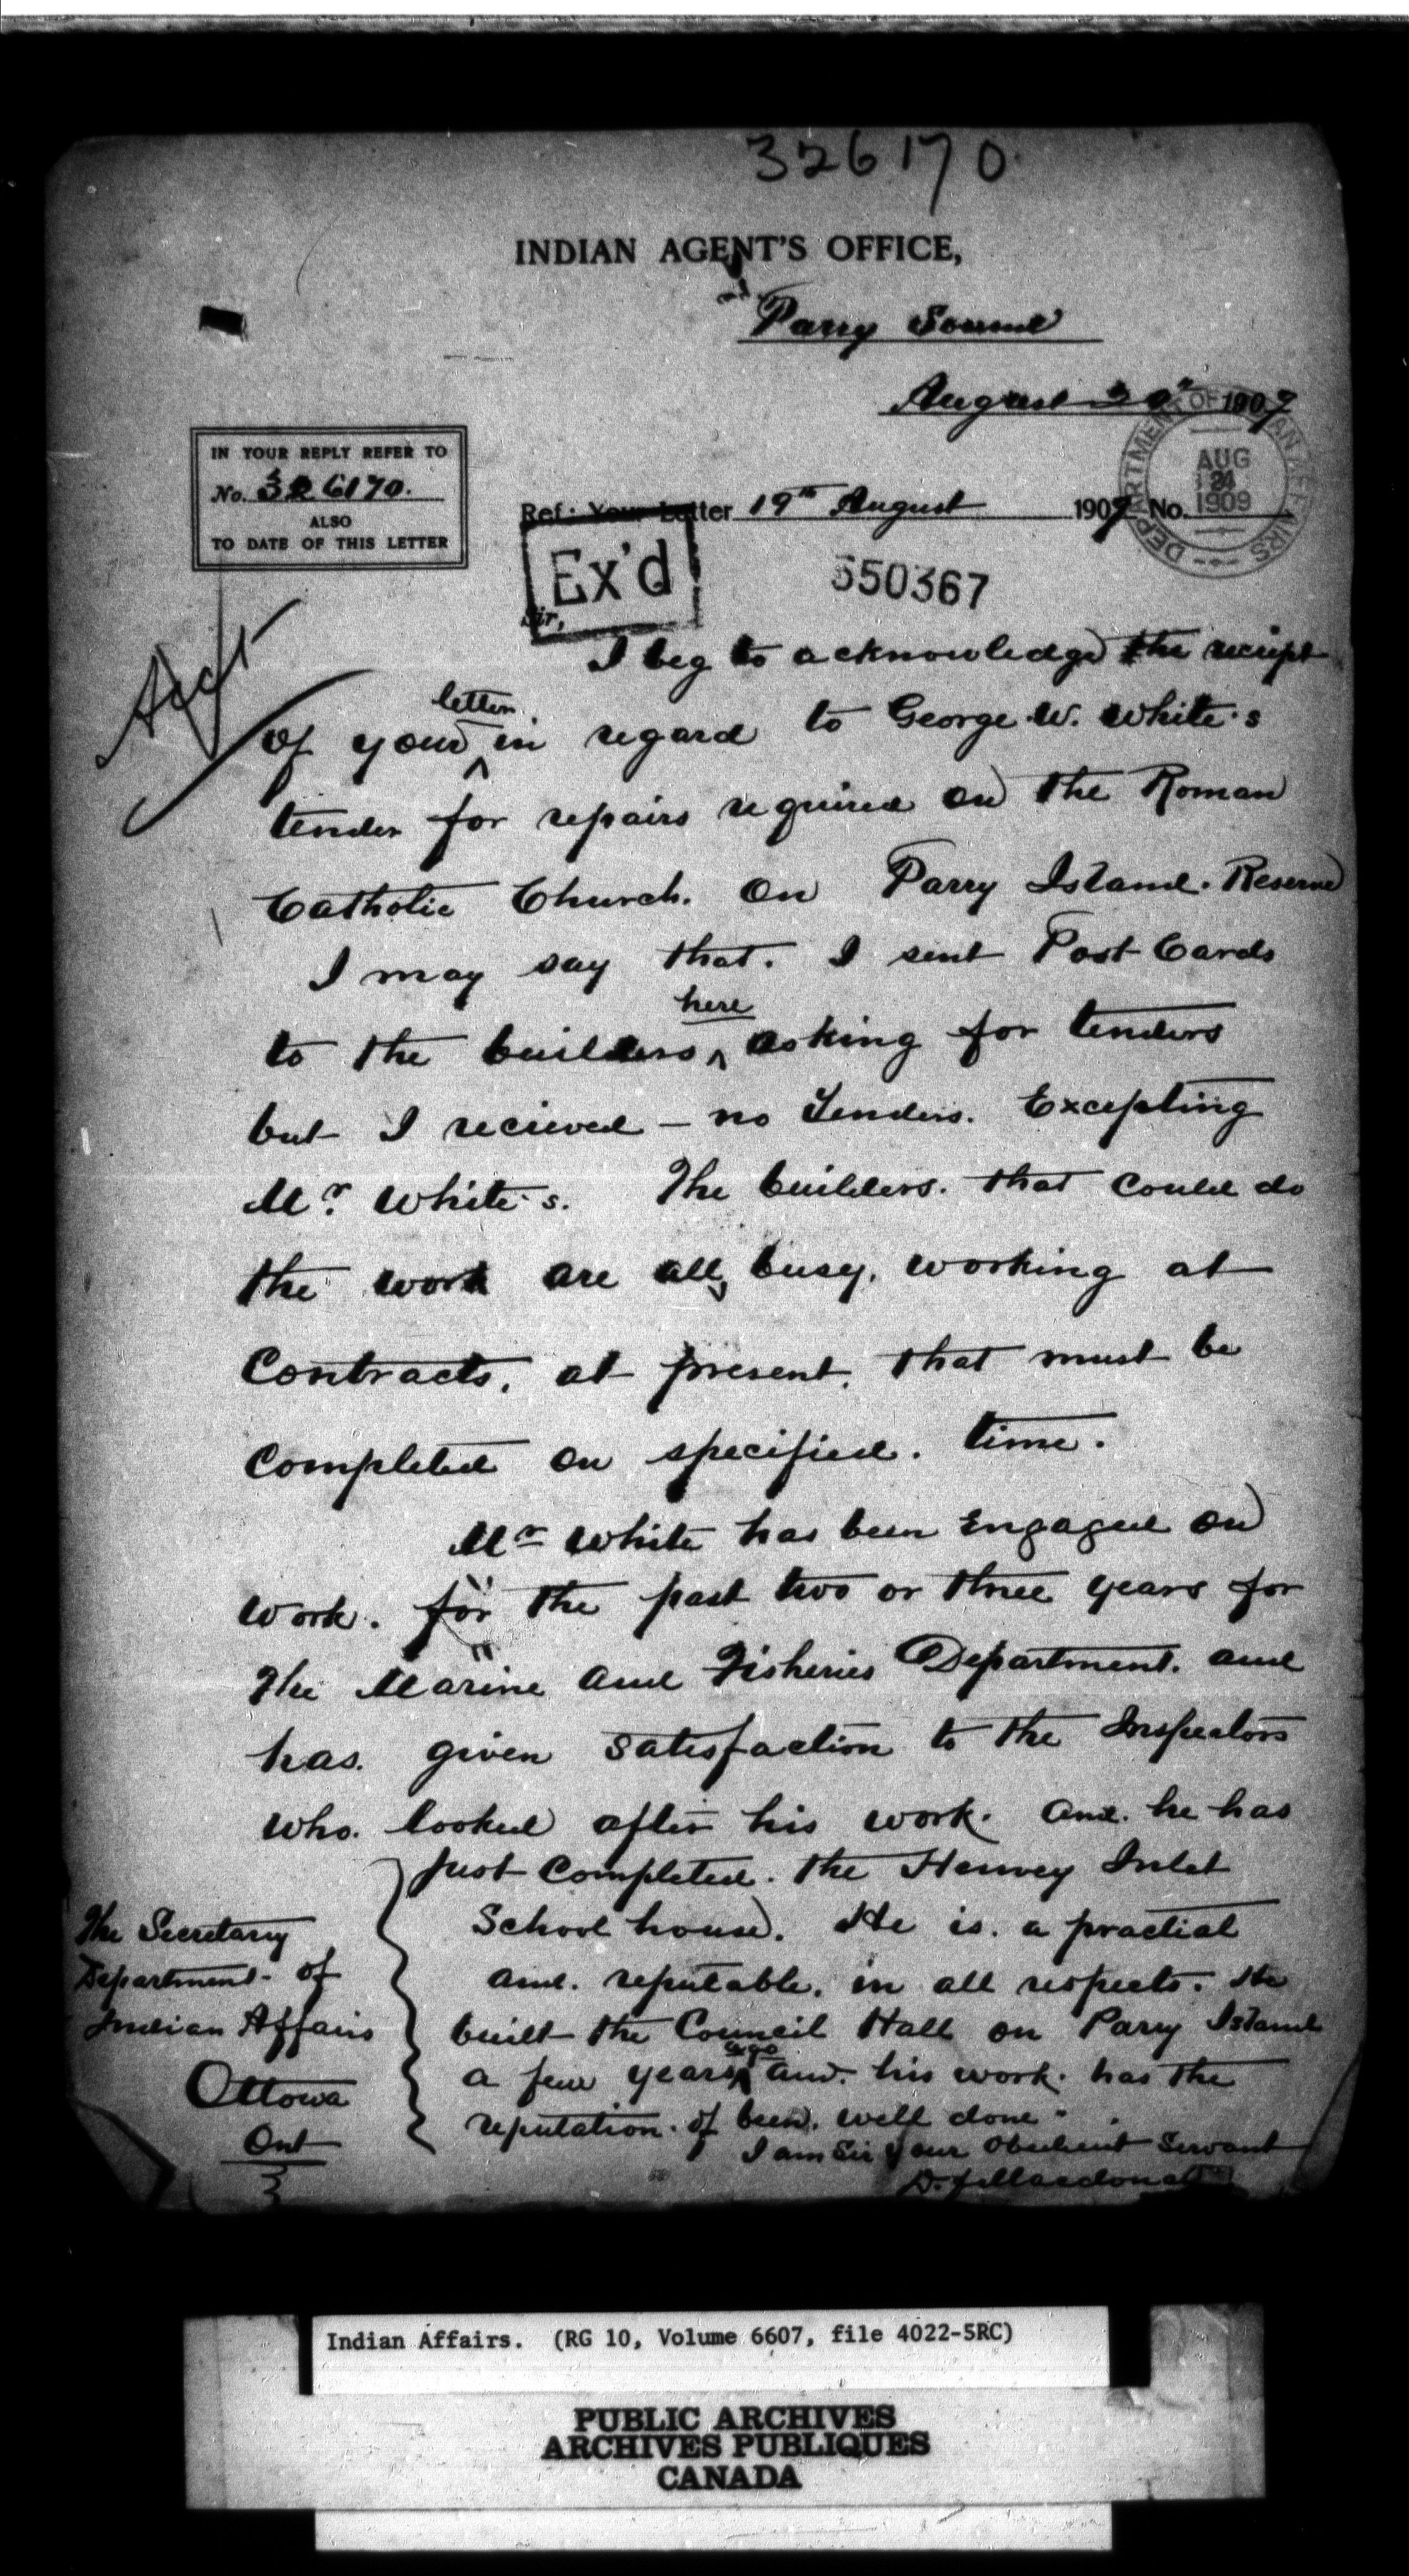 326170
INDIAN AGENT'S OFFICE,
Parry Sound
August 1909
IN YOUR REPLY REFER TO
No. 326170.
ALSO
TO DATE OF THIS LETTER
DEPARTMENT OF INDIAN AFFAIRS
AUG
24
1909
Ref: Your Letter 19th August 1909 No.
Ex'd
550367
Sir,
I beg to acknowledge the reciept
of your letter in regard to George W. White's
tender for repairs required on the Roman
Catholic Church. On Parry Island. Reserve
I may say that. I sent Post Cards
to the builders here asking for tenders
but I recieved – no Tenders. Excepting
Mr. White's. The builders. that could do
the work are all busy. working at
Contracts. at present. that must be
Completed on specified. time.
Mr White has been Engaged on
work. for the past two or three years for
The Marine and Fisheries Department. and
has. given satisfaction to the Inspectors
who. looked after his work. and. he has
just Completed. the Henvey Inlet
School house. He is. a practial
and. reputable. in all respects. He
built the Council Hall on Parry Island
a few years ago and. his work. has the
reputation. of been. well done.
I am Sir Your Obedient Servant
D. F. Macdonald
The Secretary
Department of
Indian Affairs
Ottowa
Ont
Indian Affairs. (RG 10, Volume 6607, file 4022-5RC)
PUBLIC ARCHIVES
ARCHIVES PUBLIQUES
CANADA